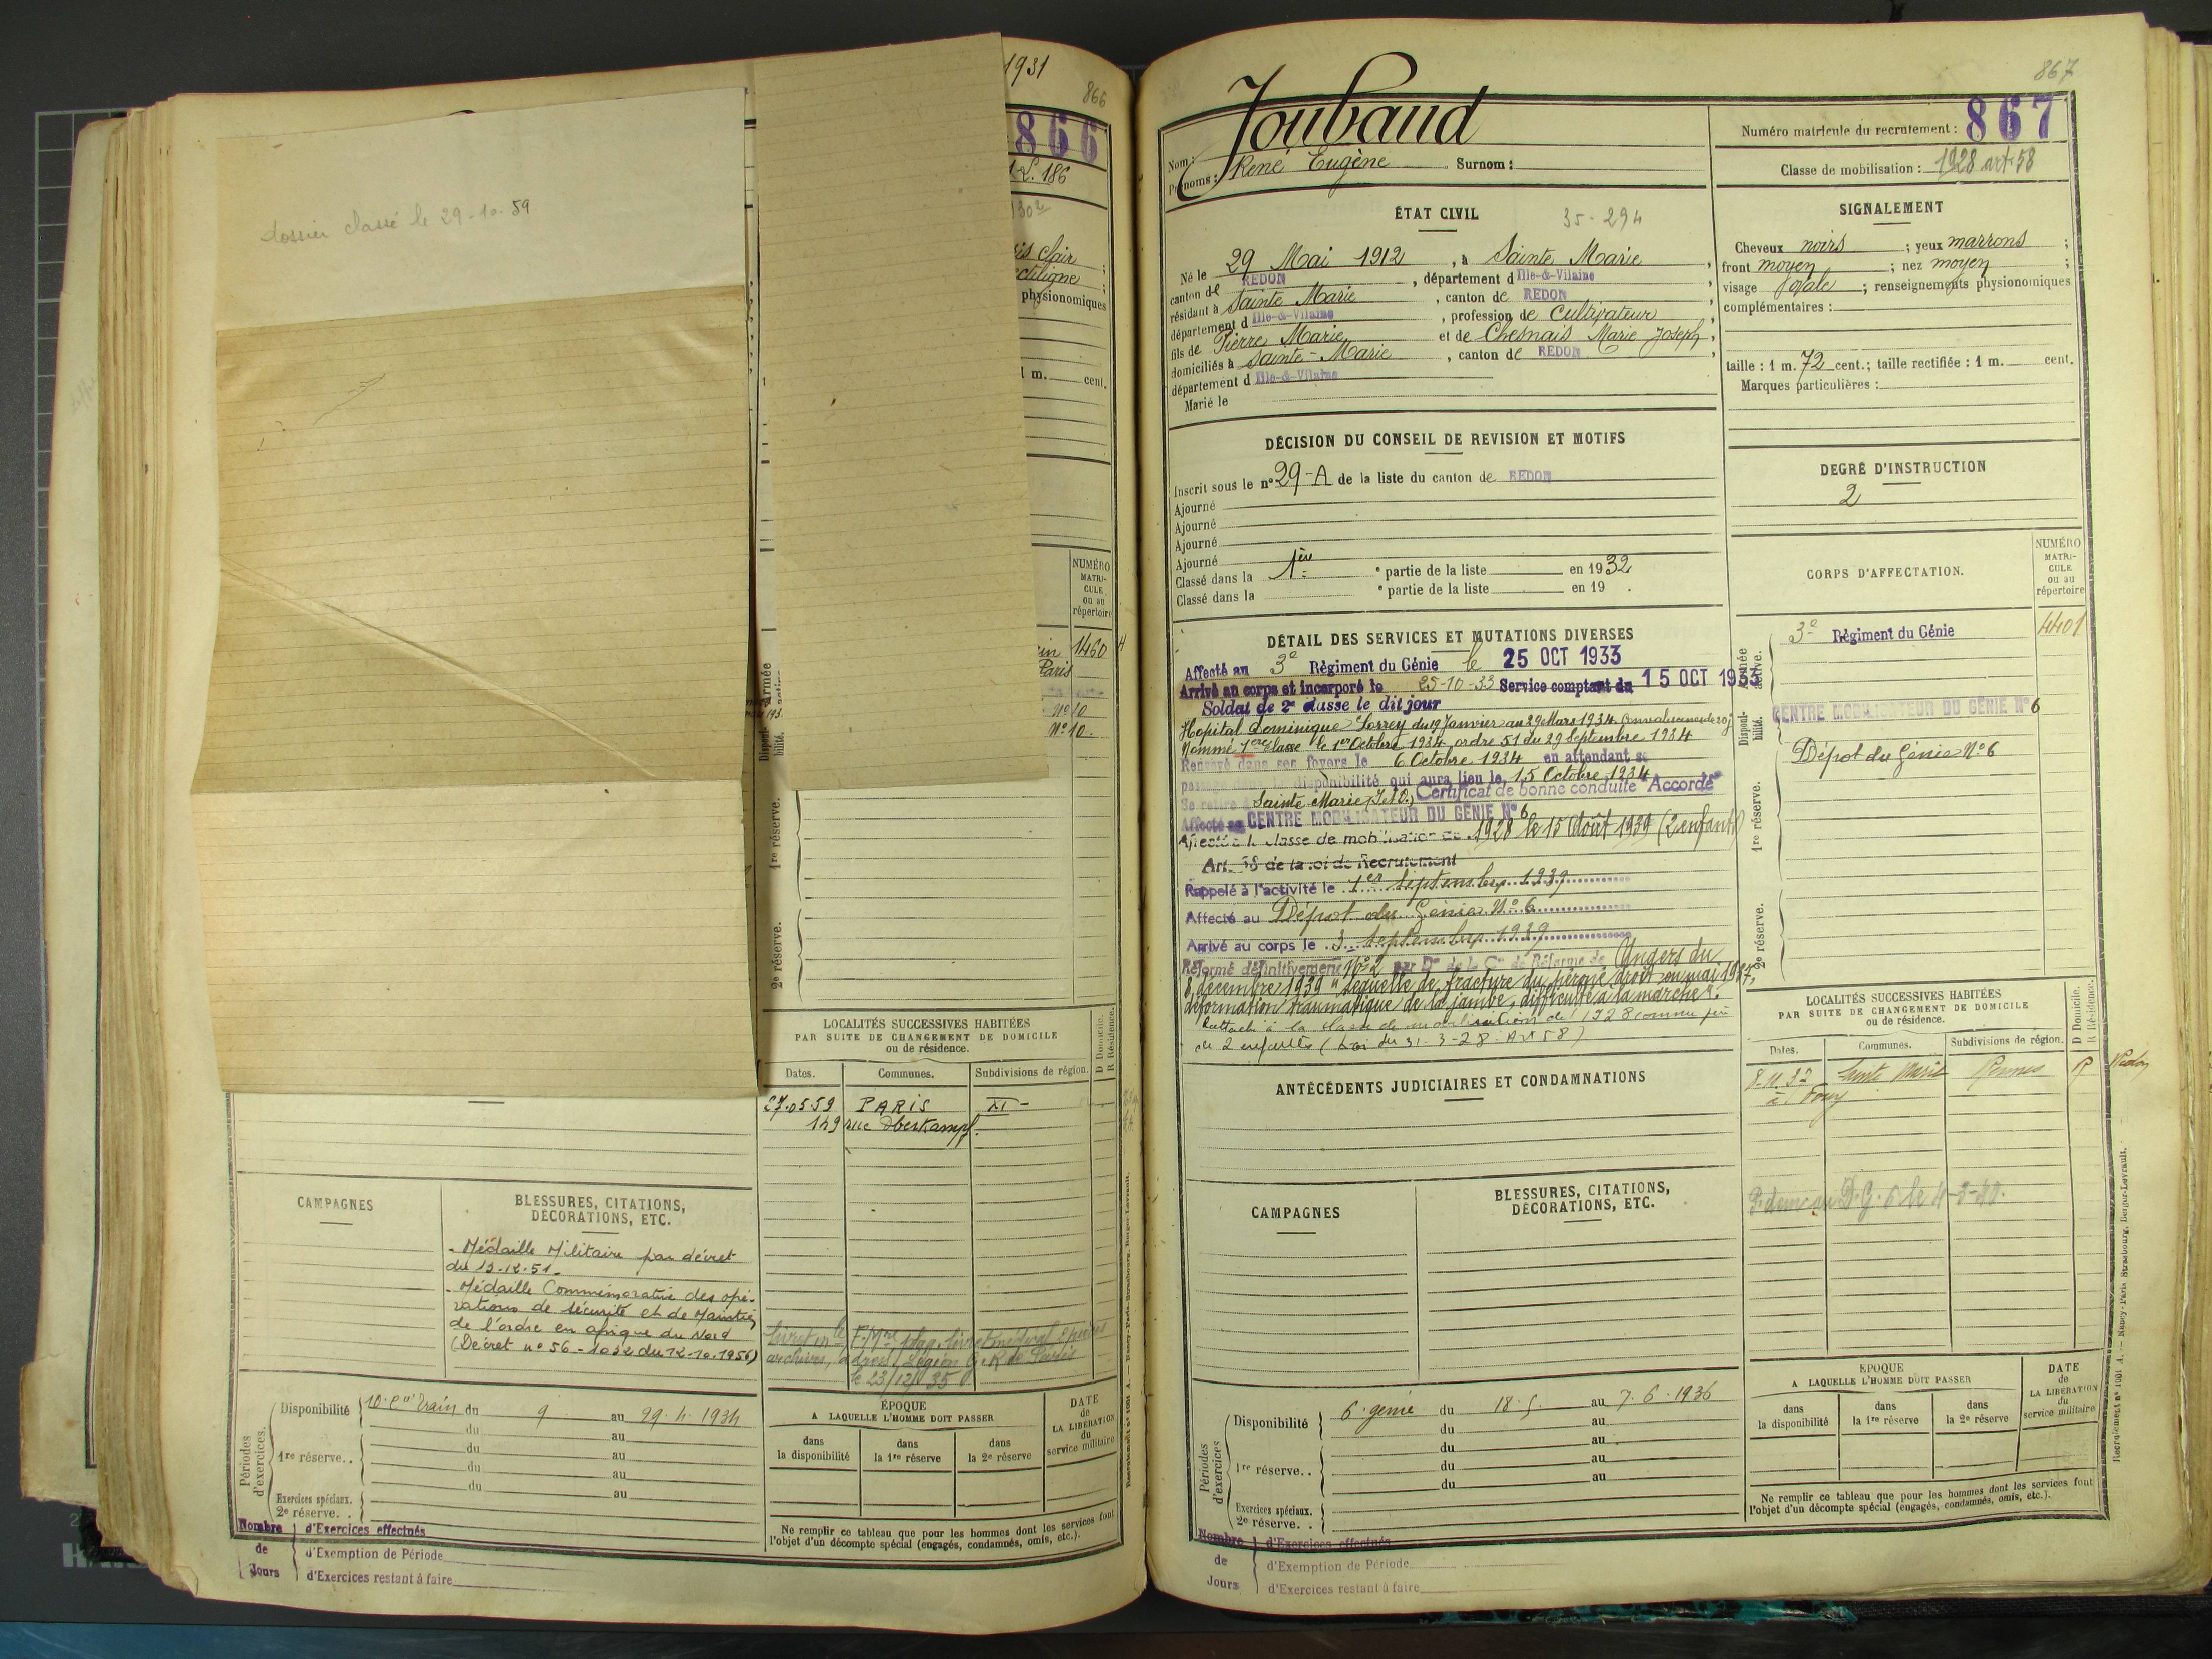 1931
866
866
1 L. 186
dossier classé le 29-10-59
is clair
ctiligne
physionomiques
1 m. cent.
NUMÉRO
MATRI-
CULE
ou au
répertoire
1460
Paris
No 10
No 10.
Armée
Disponi-
bilité.
1re réserve.
2e réserve.
LOCALITÉS SUCCESSIVES HABITÉES
PAR SUITE DE CHANGEMENT DE DOMICILE
ou de résidence.
D Domicile.
R Résidence.
Dates. Communes. Subdivisions de région.
27.05.59 PARIS XI
149 rue Oberkampf.
CAMPAGNES
BLESSURES, CITATIONS,
DÉCORATIONS, ETC.
- Médaille Militaire par décret
du 12.12.51.
- Médaille Commémorative des opé-
rations de sécurité et de Maintien
de l'ordre en afrique du Nord
(Décret n° 56-1032 du 12-10-1956)
archives, Légion G. R de Paris
le 23/12/35
Périodes
d'exercices.
Disponibilité 10. Train du 9 au 29.4.1934
du au
1re réserve.. du au
du au
du au
Exercices spéciaux.
2e réserve. .
ÉPOQUE
A LAQUELLE L'HOMME DOIT PASSER
dans
la disponibilité
dans
la 1re réserve
dans
la 2e réserve
DATE
de
LA LIBÉRATION
du
service militaire
Ne remplir ce tableau que pour les hommes dont les services font
l'objet d'un décompte spécial (engagés, condamnés, omis, etc.).
Nombre
de
Jours
d'Exercices effectués
d'Exemption de Période
d'Exercices restant à faire
867
Nom : Joubaud
Prénoms : René Eugène Surnom :
Numéro matricule du recrutement : 867
Classe de mobilisation : 1928 art 58
ÉTAT CIVIL
35-294
Né le 29 Mai 1912, à Sainte Marie,
canton de REDON, département d Ille-&-Vilaine,
résidant à Sainte Marie, canton de REDON,
département d Ille-&-Vilaine, profession de Cultivateur,
fils de Pierre Marie et de Chesnais Marie Joseph,
domiciliés à Sainte-Marie, canton de REDON,
département d Ille-&-Vilaine
Marié le
SIGNALEMENT
Cheveux noirs ; yeux marrons ;
front moyen ; nez moyen ;
visage ovale ; renseignements physionomiques
complémentaires :
taille : 1 m. 72 cent.; taille rectifiée : 1 m. cent.
Marques particulières :
DÉCISION DU CONSEIL DE REVISION ET MOTIFS
Inscrit sous le n° 29-A de la liste du canton de REDON
Ajourné
Ajourné
Ajourné
Ajourné
Classé dans la 1ère e partie de la liste en 1932
Classé dans la e partie de la liste en 19 .
DEGRÉ D'INSTRUCTION
2
CORPS D'AFFECTATION.
NUMÉRO
MATRI-
CULE
ou au
répertoire
3e Régiment du Génie 4401
CENTRE MOBILISATEUR DU GÉNIE N° 6
Dépot du Génie N° 6
Armée
active.
Disponi-
bilité.
1re réserve.
2e réserve.
DÉTAIL DES SERVICES ET MUTATIONS DIVERSES
Affecté au 3e Régiment du Génie le 25 OCT 1933
Arrivé au corps et incorporé le 25-10-33 Service comptant du 15 OCT 1933
Soldat de 2e classe le dit jour
Hopital Dominique Larrey du 19 Janvier au 29 Mars 1934. Convalescence de 20 j
Nommé 1ère classe le 1er Octobre 1934 ordre 51 du 29 Septembre 1934
Renvoyé dans ses foyers le 6 Octobre 1934 en attendant s
passage disponibilité qui aura lieu le 15 Octobre 1934
Se retire à Sainte Marie (I et V.) Certificat de bonne conduite "Accordé"
Affecté au CENTRE MOBILISATEUR DU GÉNIE N° 6
Affecté à la classe de mobilisation de 1928 le 15 Août 1939 (2 enfants)
Art. 58 de la loi de Recrutement
Rappelé à l'activité le 1er Septembre 1939
Affecté au Dépot du Génie N° 6
Arrivé au corps le 3 Septembre 1939
Réformé définitivement N° 2 par Don de la Con de Réforme de Angers du
8 décembre 1939 "Séquelle de fracture du péroné droit en mai 1937,
déformation traumatique de la jambe, difficulté à la marche".
Rattaché à la classe de mobilisation de 1928 comme père
de 2 enfants (Loi du 31-3-28. Art 58)
ANTÉCÉDENTS JUDICIAIRES ET CONDAMNATIONS
LOCALITÉS SUCCESSIVES HABITÉES
PAR SUITE DE CHANGEMENT DE DOMICILE
ou de résidence.
D Domicile.
R Résidence.
Dates. Communes. Subdivisions de région.
8.11.37 Sainte Marie Rennes R Redon
CAMPAGNES
BLESSURES, CITATIONS,
DÉCORATIONS, ETC.
Périodes
d'exercices
Disponibilité 6. génie du 18.5. au 7.6.1936
du au
du au
1re réserve.. du au
du au
Exercices spéciaux.
2e réserve. .
ÉPOQUE
A LAQUELLE L'HOMME DOIT PASSER
dans
la disponibilité
dans
la 1re réserve
dans
la 2e réserve
DATE
de
LA LIBÉRATION
du
service militaire
Ne remplir ce tableau que pour les hommes dont les services font
l'objet d'un décompte spécial (engagés, condamnés, omis, etc.).
Nombre
de
Jours
d'Exercices effectués
d'Exemption de Période
d'Exercices restant à faire
Nancy-Paris-Strasbourg, Berger-Levrault.